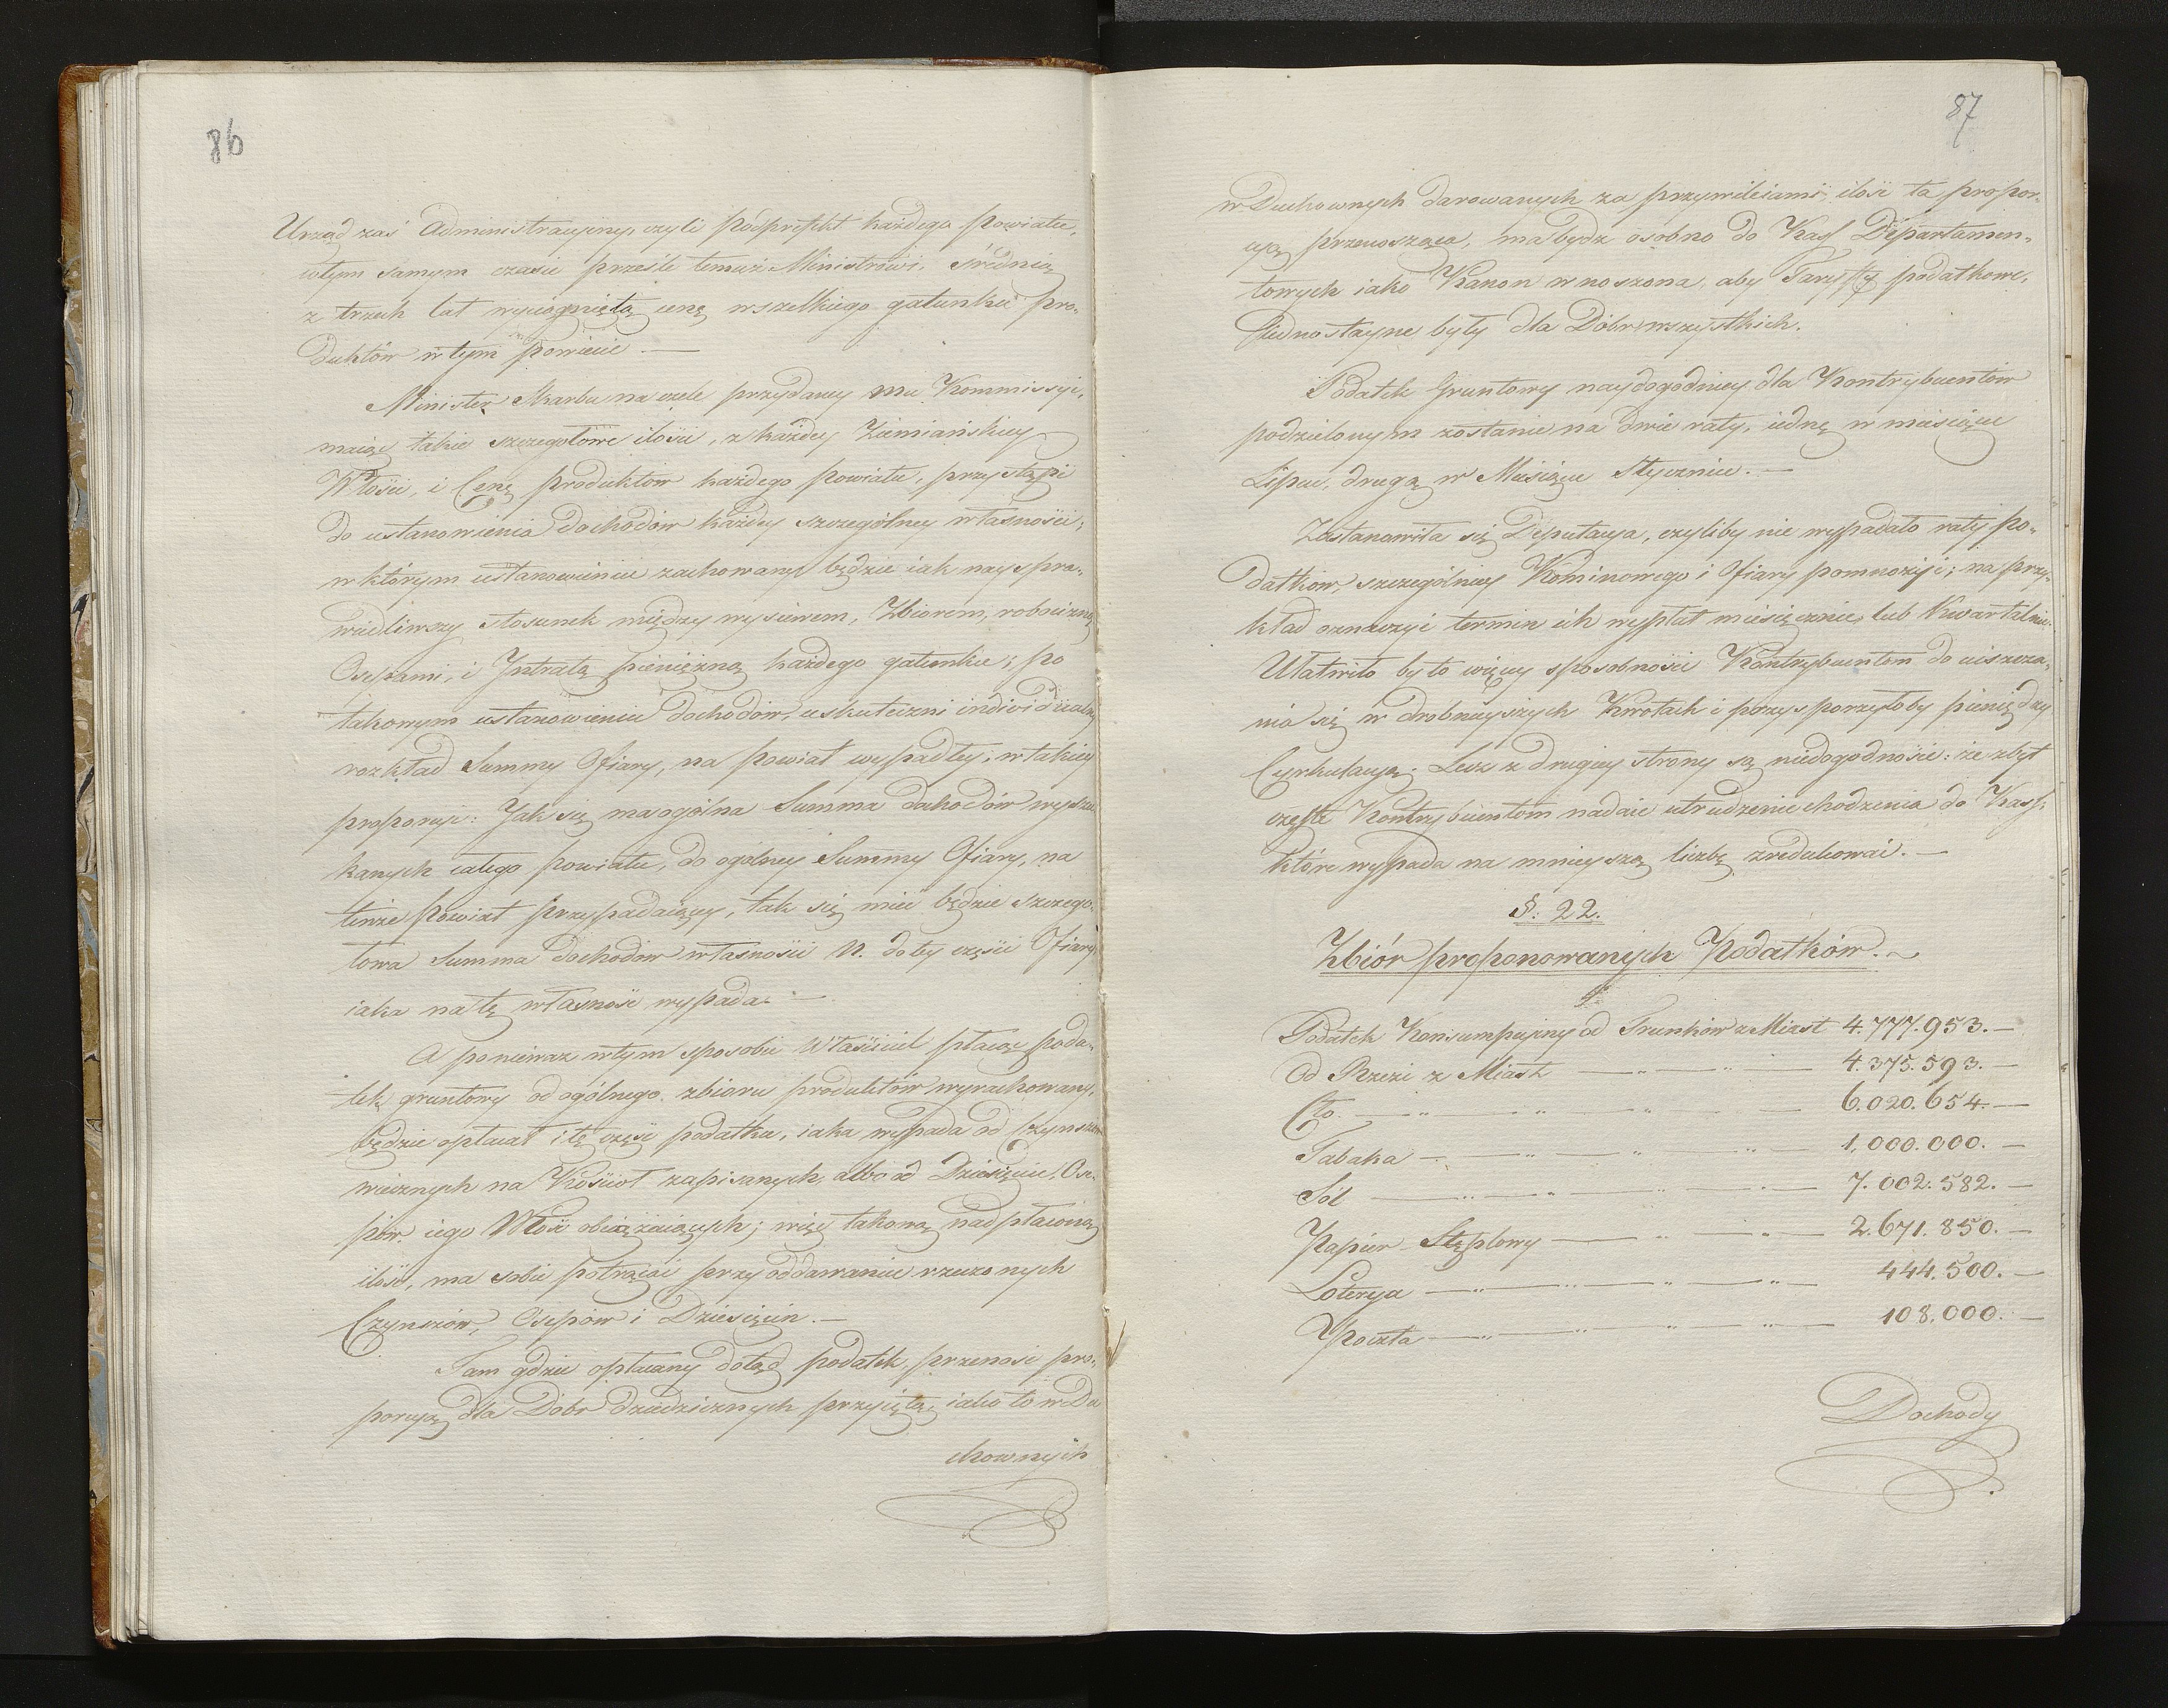 86
Urząd zaś Administracyiny, czyli Podprefekt każdego Powiatu,
wtym samym czasie prześle temuż Ministrowi, średnią
z trzech lat wyciągniętą cenę wszelkiego gatunku pro„
duktów w tym Powiecie —
Minister Skarbu na czele przydaney mu Kommissyi,
maiąc takie szczegółowe ilości, z każdey Ziemiańskiey
Włości, i Cenę produktów każdego Powiatu, przystąpi
do ustanowienia dochodów każdey szczególney własności,
w którym ustanowieniu zachowany będzie iak nayspra„
wiedliwszy stosunek między wysiewem, Zbiorem, robocizną
Osepami, i Jntratą pieniężną każdego gatunku; po
takowym ustanowieniu dochodów, uskuteczni individualny
rozkład Summy Ofiary, na Powiat wypadłey, w takiey
proporcyi: Jak się ma ogólna Summa dochodów wyszu
kanych całego Powiatu, do ogólney Summy Ofiary, na
tenże Powiat przypadaiącey, tak się mieć będzie szczegó„
łowa Summa dochodów własności N. do tey części Ofiary
iaka na tę własność wypada. —
A ponieważ wtym sposobie Właściciel płacąc poda„
tek gruntowy od ogólnego zbioru produktów wyrachowany,
będzie opłacał i tę część podatku, iaka wypada od Czynszów
wiecznych na Kościół zapisanych, albo od Dziesięcin, Ose„
pów iego Włość obciążaiących; więc takową nadpłaconą
ilość, ma sobie potrącać przy oddawaniu rzeczonych
Czynszów, Osepów i Dziesięcin. —
Tam gdzie opłacany dotąd podatek, przenosi pro„
porcyą dla Dóbr dziedzicznych przyiętą, iako to w Du
chownych
87
w Duchownych darowanych za przywileiami, ilość ta propor„
cyą przenosząca, ma bydź osobno do Kass Departamen„
towych iako Kanon wnoszona, aby Taryffy podatkowe,
Jednostayne były dla Dóbr wszystkich.
Podatek Gruntowy naydogodniey dla Kontrybuentów
podzielonym zostanie na dwie raty, iedną w miesiącu
Lipcu, drugą w Miesiącu Styczniu. —
Zastanowiła się Deputacya, czyliby nie wypadało raty po„
datków, szczególniey Kominowego i Ofiary pomnożyć; na przy„
kład oznaczyć termin ich wypłat miesięcznie, lub Kwartalnie.
Ułatwiło by to więcey sposobności Kontrybuentom do uiszcza„
nia się w drobnieyszych Kwotach i przysporzyłoby pieniędzy
Cyrkulacyą. Lecz z drugiey strony są niedogodności: że zbyt
częste Kontrybuentom nadaie utrudzenie chodzenia do Kass,
które wypada na mnieyszą liczbę zredukować. —
§. 22.
Zbiór proponowanych Podatków. —
Podatek Konsumpcyiny od Trunków z Miast 4.777.953. —
Od Rzezi z Miast — „ — „ — 4.375.593. —
Cło — „ — „ — „ — 6.020.654. —
Tabaka — „ — „ — „ — 1,000.000. —
Sól — „ — „ — „ — 7.002.582. —
Papier Stęplowy — „ — „ — 2.671.850. —
Loterya — „ — „ — „ — 444.500. —
Poczta — „ — „ — „ — 108.000. —
Dochody